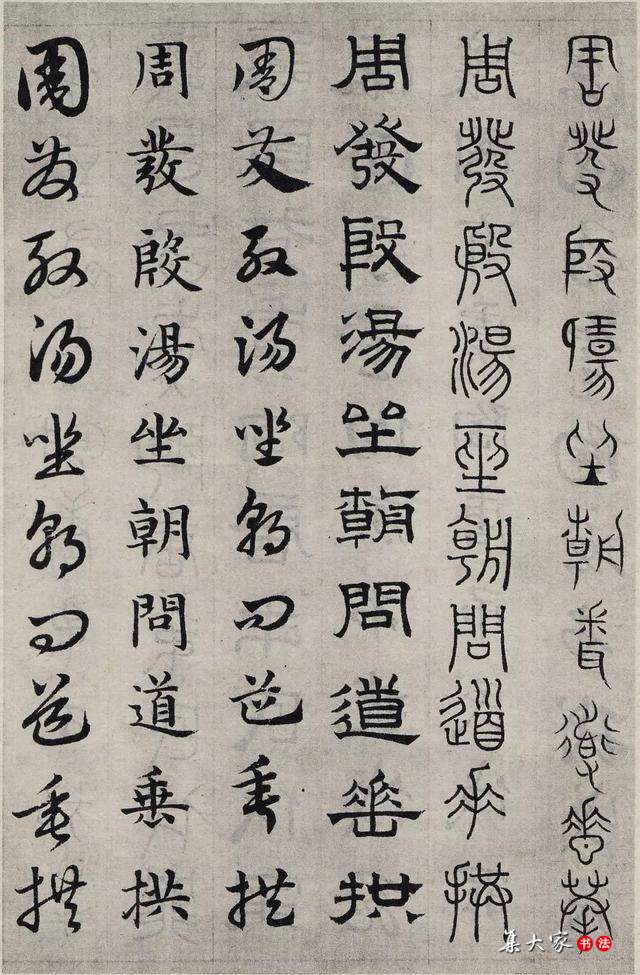 周發殷湯坐朝問道垂拱
周發殷湯坐朝問道垂拱
周發殷湯坐朝問道垂拱
周發殷湯坐朝問道垂拱
周發殷湯坐朝問道垂拱
周發殷湯坐朝問道垂拱
集大家书法